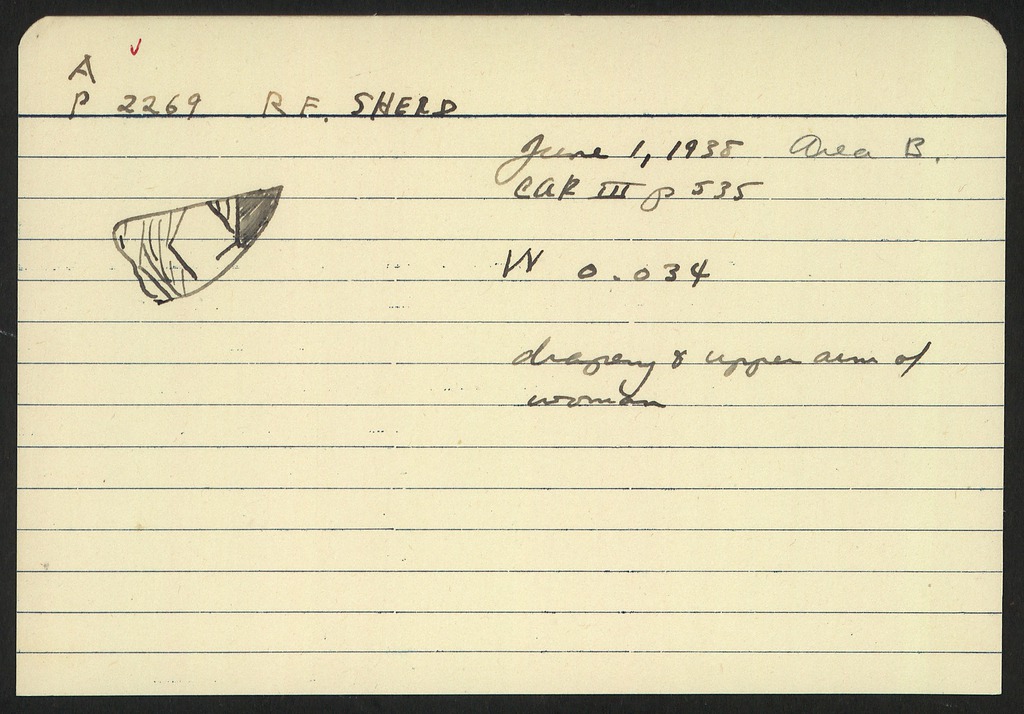 A ✓
P 2269 R.F. SHERD
June 1, 1938 Area B.
CAR III p 535
W 0.034
drapery & upper arm of
woman